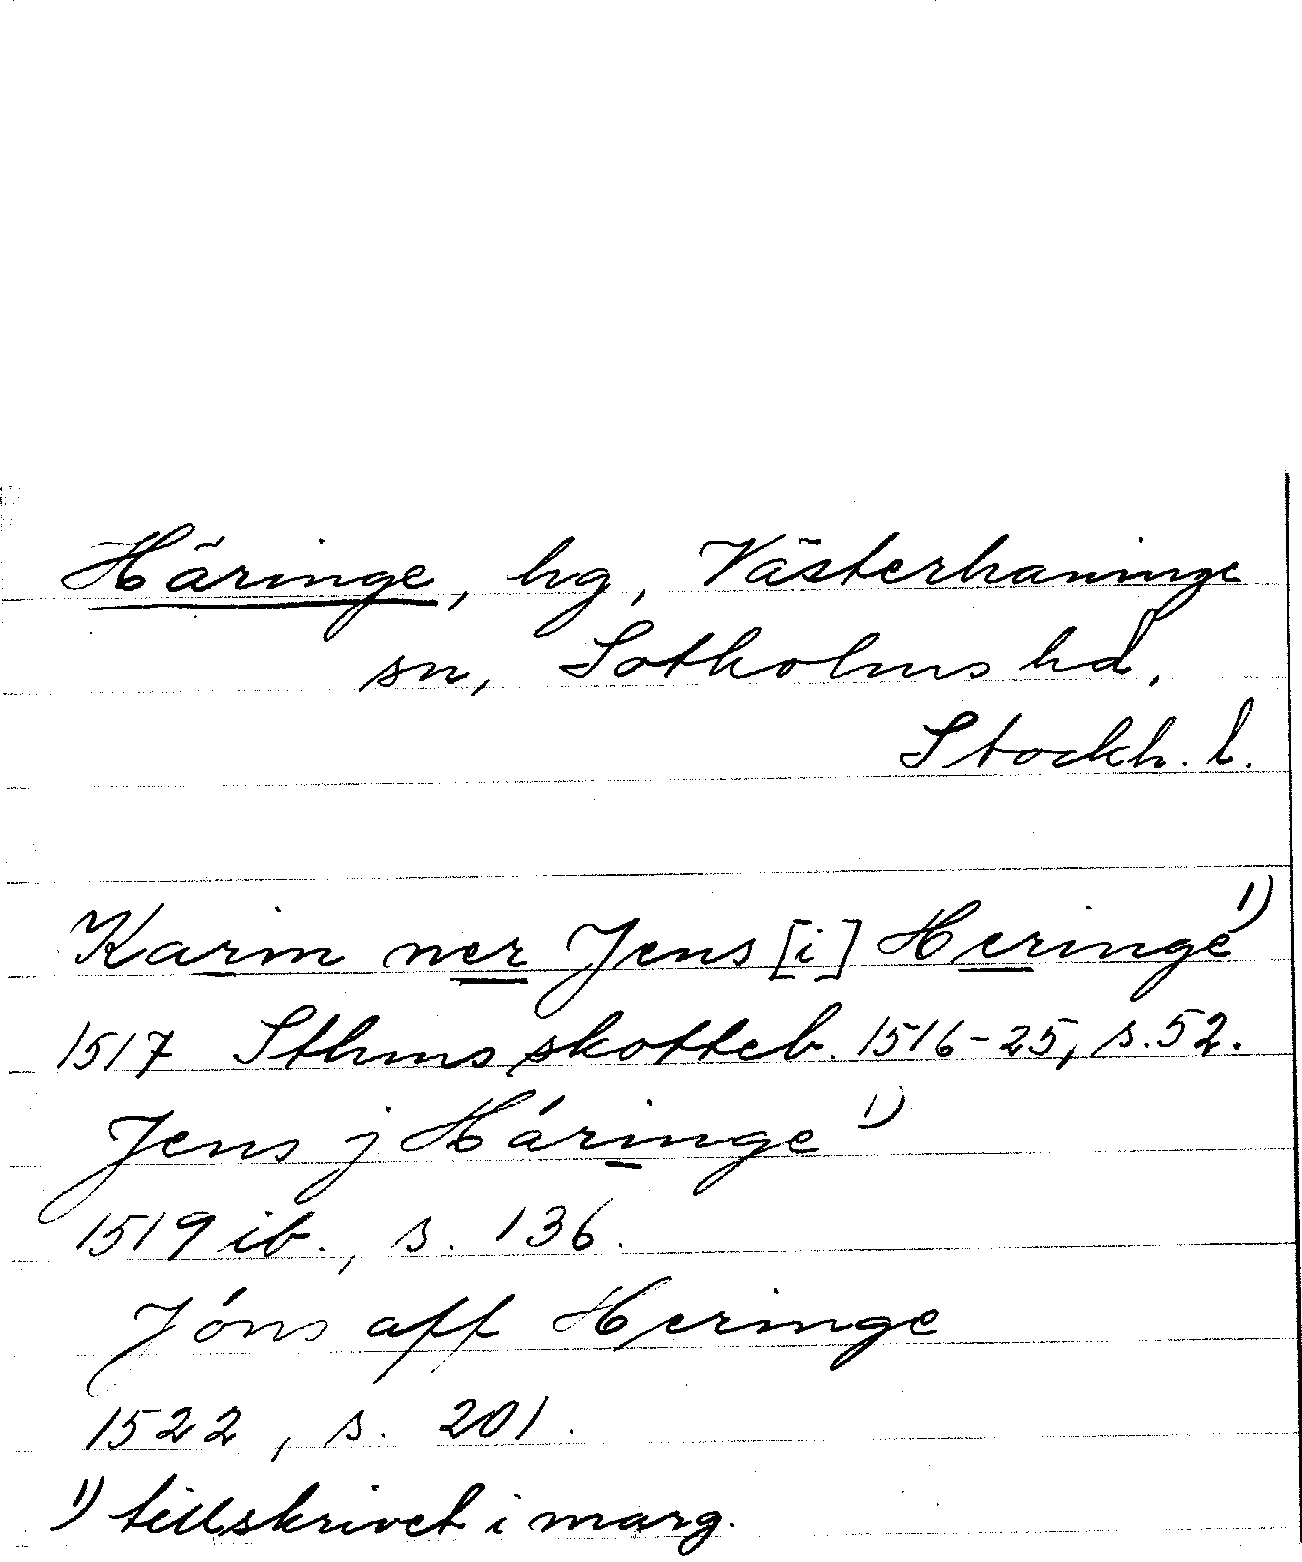 Häringe, hg, Västerhaninge
sn, Sotholms hd,
Stockh. l.
Karin ner Jens [i] Heringe 1)
1517 Sthms skotteb. 1516-25, s. 52.
Jens j Háringe 1)
1519 ib., s. 136.
Jóns aff Heringe
1522, s. 201.
1) tillskrivet i marg.